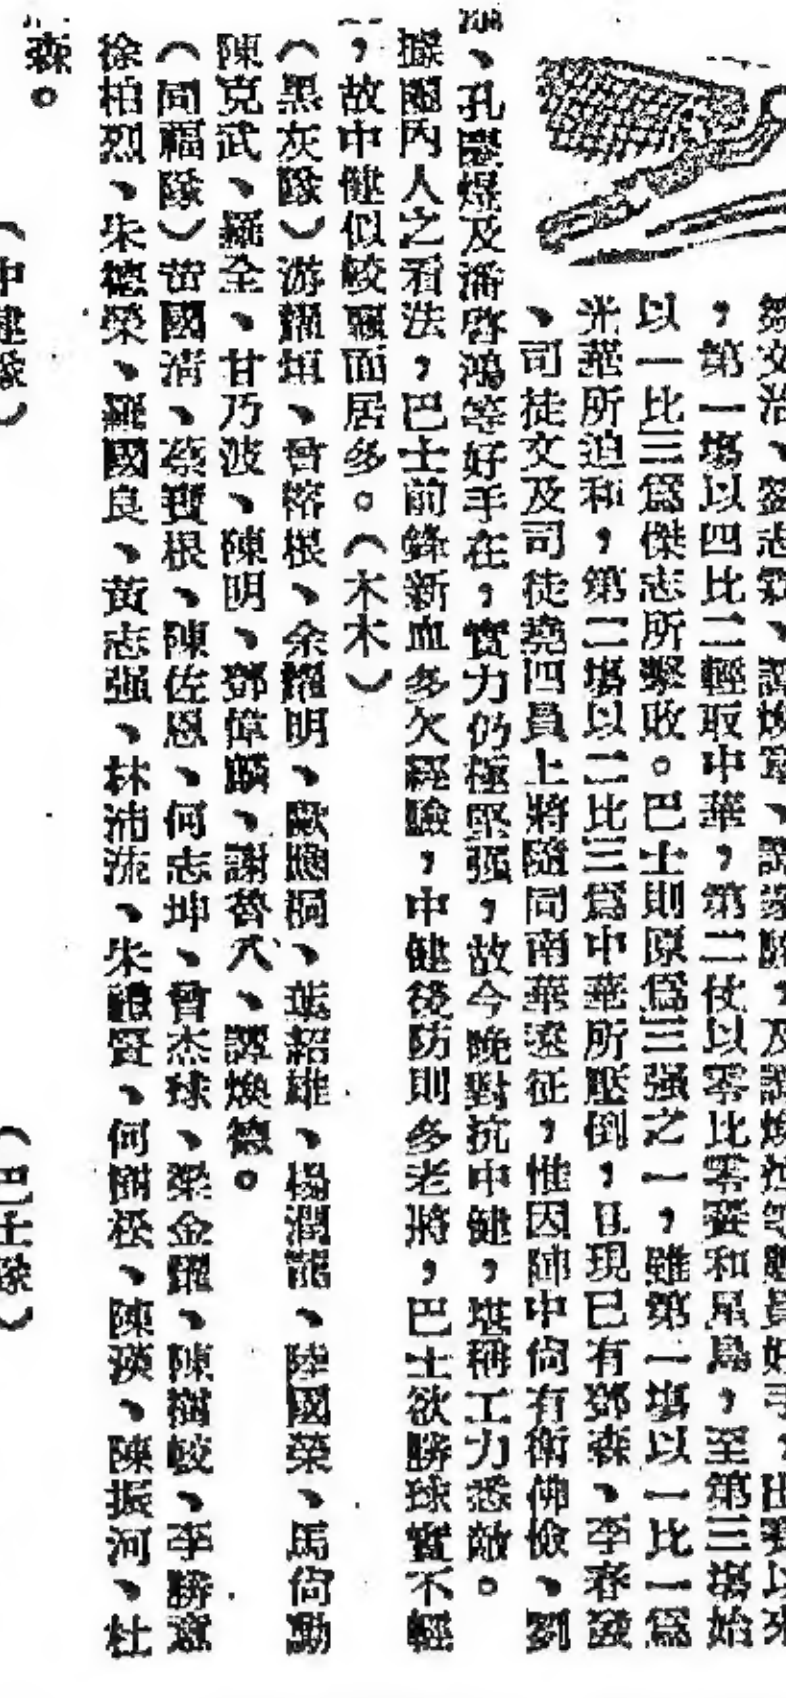 黎文治、劉志霖、譚煥章、譚 、及譚煥 等體員好手，出賽以來
，第一塲以四比二輕取中華，第二仗以零比零要和星島，至第三塲始
以一比三爲傑志所擊敗。巴士則原爲三强之一，雖第一塲以一比一爲
光華所迫和，第二塲以二比三爲中華所壓倒，且現已有鄧森、李春發
、司徒文及司徒堯四員上將隨同南華遠征，惟因陣中尙有衛佛儉、劉
、孔慶煜及潘啓鴻等好手在，實力仍極堅强，故今晚對抗中健，堪稱工力悉敵。
據圈內人之看法，巴士前鋒新血多欠經驗，中健後防則多老將，巴士欲勝球實不輕
，故中健似較贏面居多。（木木）
（黑灰隊）游耀垣、曾榕根、余耀明、歐應桐、葉紹雄、楊潤龍、陸國榮、馬尙勳
陳克武、羅全、甘乃波、陳明、鄧偉麟、謝普八、譚煥德。
（同福隊）黃國淸、蔡寶根、陳佐恩、何志坤、曾杰球、梁金耀、陳樹較、李勝意
徐柏烈、朱德榮、羅國良、黃志强、林沛流、朱體賢、何樹松、陳漢、陳振河、杜
森。
（中健隊）　（巴士隊）